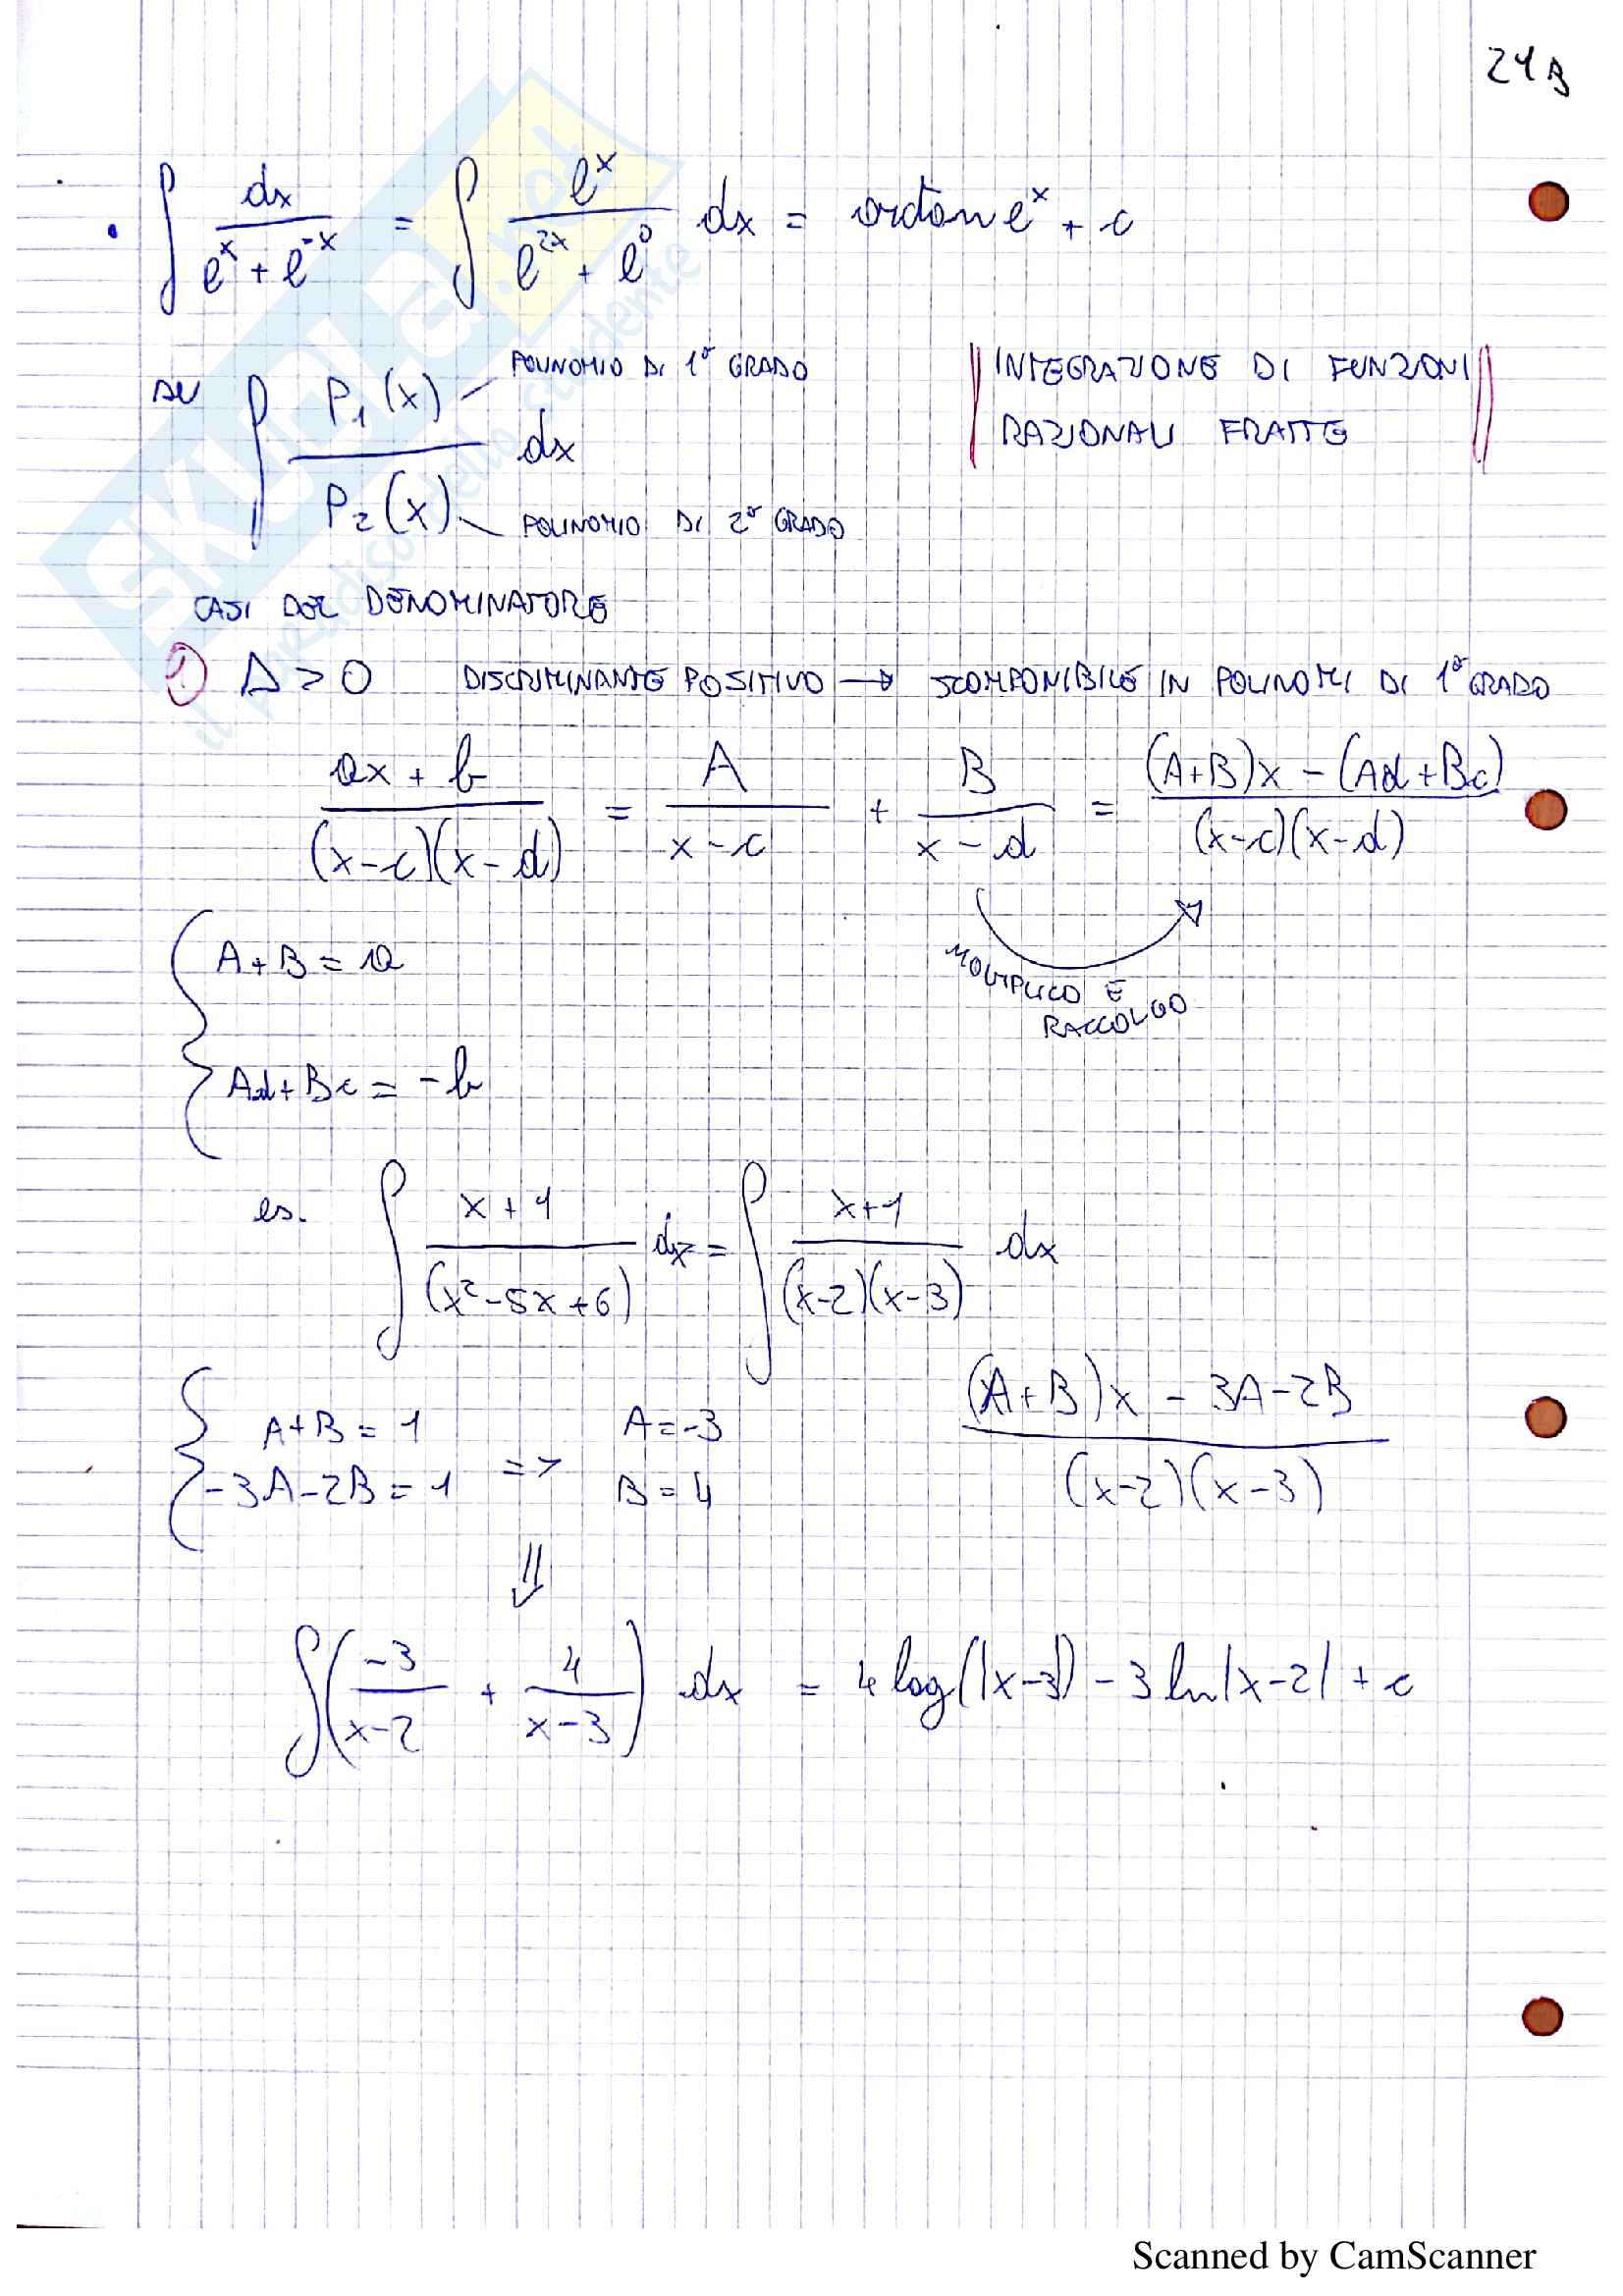 24B
• ∫ dx / (e^x + e^-x) = ∫ e^x / (e^2x + e^0) dx = arctan e^x + c
SKUOLA.NET
il paradiso dello studente
SU ∫ P₁(x) / P₂(x) dx
POLINOMIO DI 1° GRADO
POLINOMIO DI 2° GRADO
INTEGRAZIONE DI FUNZIONI
RAZIONALI FRATTE
CASI DEL DENOMINATORE
① Δ > 0 DISCRIMINANTE POSITIVO → SCOMPONIBILE IN POLINOMI DI 1° GRADO
(ax + b) / ((x-c)(x-d)) = A / (x-c) + B / (x-d) = ((A+B)x - (Ad+Bc)) / ((x-c)(x-d))
MOLTIPLICO E
RACCOLGO
{ A+B = a
Ad+Bc = -b
es. ∫ (x+1) / (x²-5x+6) dx = ∫ (x+1) / ((x-2)(x-3)) dx
{ A+B = 1
-3A-2B = 1
=> A = -3
B = 4
((A+B)x - 3A-2B) / ((x-2)(x-3))
⇓
∫ (-3 / (x-2) + 4 / (x-3)) dx = 4 log(|x-3|) - 3 ln|x-2| + c
Scanned by CamScanner